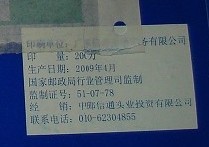 印刷单位：务有限公司
印 量：200万
生产日期：2009年4月
国家邮政局行业管理司监制
监制证号：51-07-78
经 销：中邮信通实业投资有限公司
联系电话：010-62304855